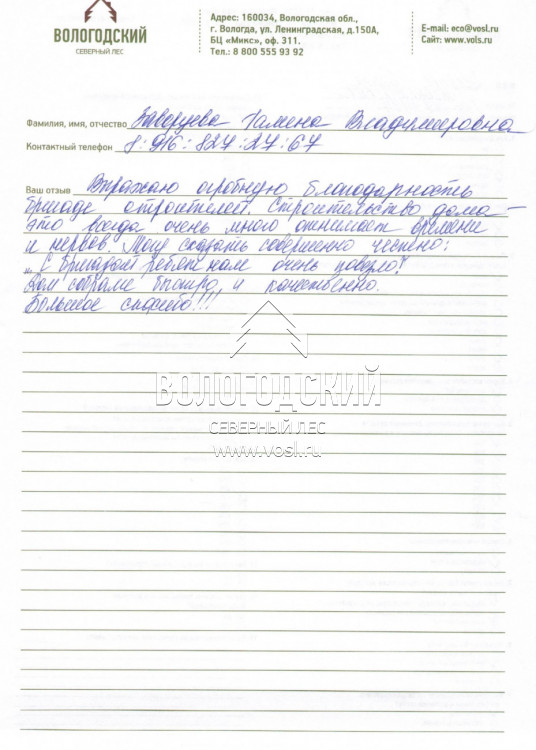 ВОЛОГОДСКИЙ
СЕВЕРНЫЙ ЛЕС
Адрес: 160034, Вологодская обл.,
г. Вологда, ул. Ленинградская, д.150А,
БЦ «Микс», оф. 311.
Тел.: 8 800 555 93 92
E-mail: eco@vosl.ru
Сайт: www.vols.ru
Фамилия, имя, отчество Владимировна
Контактный телефон 8-916-827-27-67
Ваш отзыв Выражаю огробную благодарность
бригаде строителей. Строительство дома –
это всегда очень много отнимает времени
и нервов. Могу сказать совершенно честно:
„С бригадой ребят нам очень повезло!
Дом собрали быстро, и качественно.
Большое спасибо!!!
ВОЛОГОДСКИЙ
СЕВЕРНЫЙ ЛЕС
www.vosl.ru